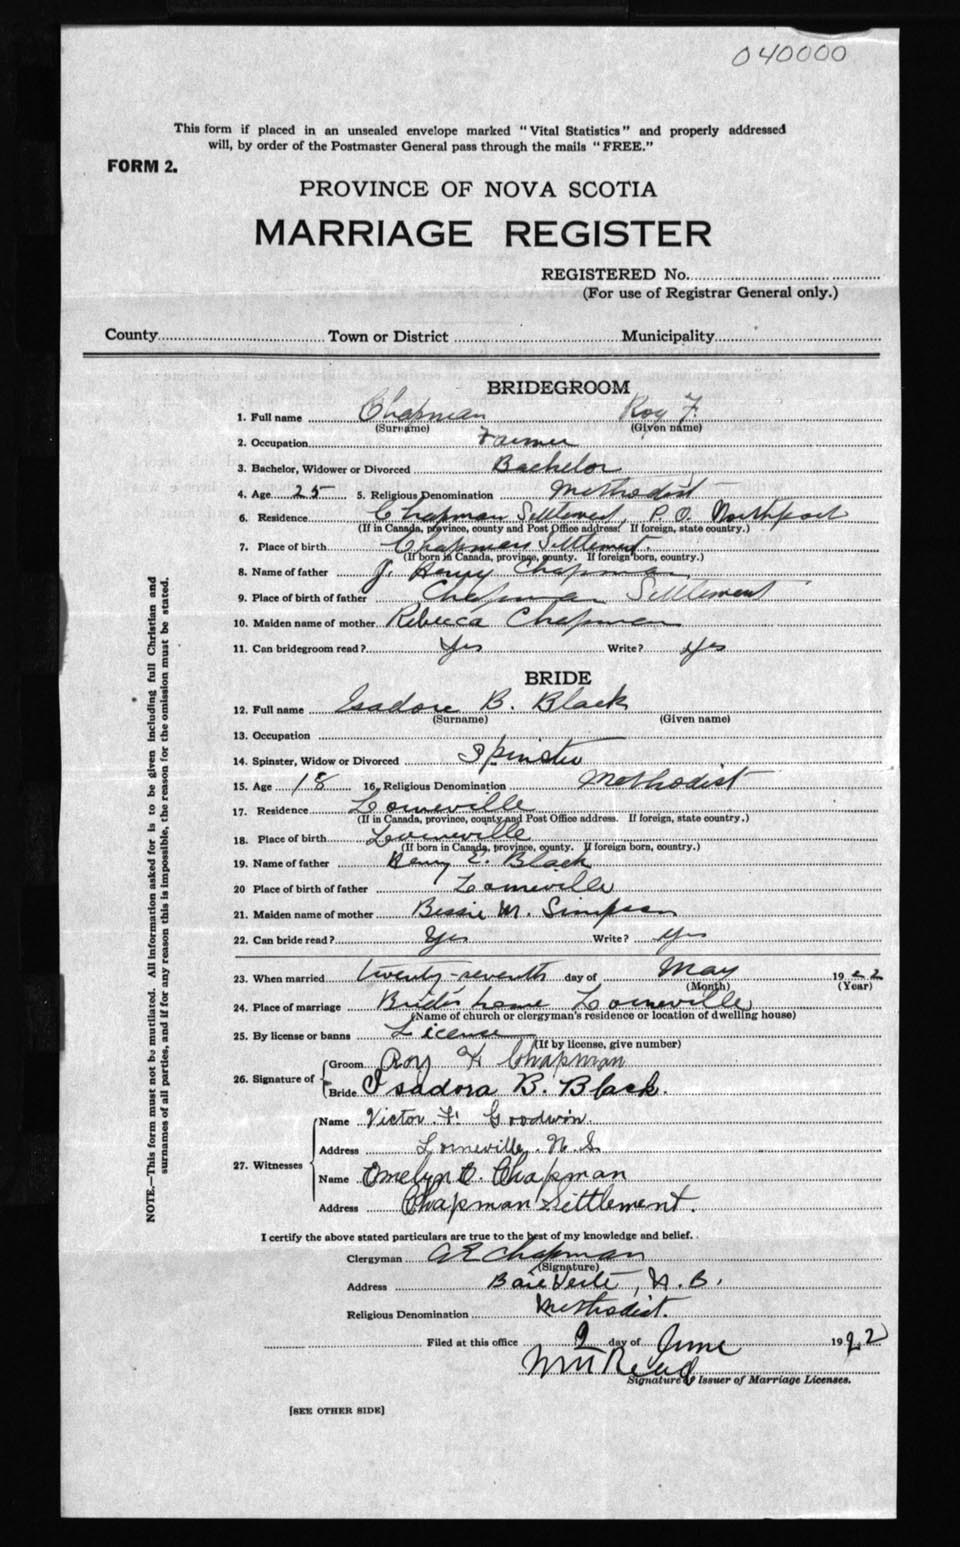 040000
This form if placed in an unsealed envelope marked "Vital Statistics" and properly addressed
will, by order of the Postmaster General pass through the mails "FREE."
FORM 2.
PROVINCE OF NOVA SCOTIA
MARRIAGE REGISTER
REGISTERED No.
(For use of Registrar General only.)
County Town or District Municipality
BRIDEGROOM
1. Full name Chapman Roy F.
(Surname) (Given name)
2. Occupation Farmer
3. Bachelor, Widower or Divorced Bachelor
4. Age 25 5. Religious Denomination Methodist
6. Residence Chapman Settlement, P.O. Northport
(If in Canada, province, county and Post Office address. If foreign, state country.)
7. Place of birth Chapman Settlement.
(If born in Canada, province, county. If foreign born, country.)
8. Name of father J. Henry Chapman
9. Place of birth of father Chapman Settlement
10. Maiden name of mother Rebecca Chapman
11. Can bridegroom read? Yes Write? yes
BRIDE
12. Full name Isadore B. Black
(Surname) (Given name)
13. Occupation
14. Spinster, Widow or Divorced Spinster
15. Age 18 16. Religious Denomination Methodist
17. Residence Lorneville
(If in Canada, province, county and Post Office address. If foreign, state country.)
18. Place of birth Lorneville
(If born in Canada, province, county. If foreign born, country.)
19. Name of father Henry E. Black
20 Place of birth of father Lorneville
21. Maiden name of mother Bessie M. Simpson
22. Can bride read? Yes Write? yes
23. When married twenty-seventh day of May 1922
(Month) (Year)
24. Place of marriage Bride's home Lorneville
(Name of church or clergyman's residence or location of dwelling house)
25. By license or banns License
(If by license, give number)
26. Signature of Groom Roy F Chapman
Bride Isadora B. Black.
27. Witnesses Name Victor F. Goodwin.
Address Lorneville, N.S.
Name Emelyn C. Chapman
Address Chapman Settlement.
I certify the above stated particulars are true to the best of my knowledge and belief.
Clergyman A E Chapman
(Signature)
Address Baie Verte, N.B.
Religious Denomination Methodist.
Filed at this office 9 day of June 1922
Wm Read
Signature of Issuer of Marriage Licenses.
[SEE OTHER SIDE]
NOTE.—This form must not be mutilated. All information asked for is to be given including full Christian and
surnames of all parties, and if for any reason this is impossible, the reason for the omission must be stated.